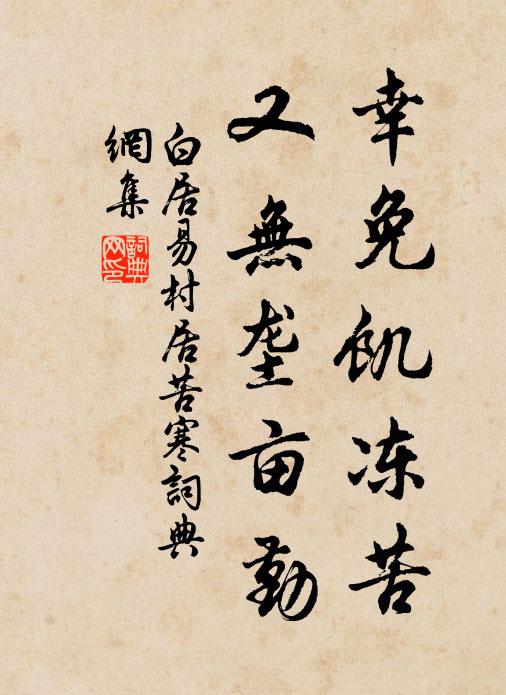 幸免饥冻苦
又無垄亩勤
白居易村居苦寒詞典
網集
詞典
网印